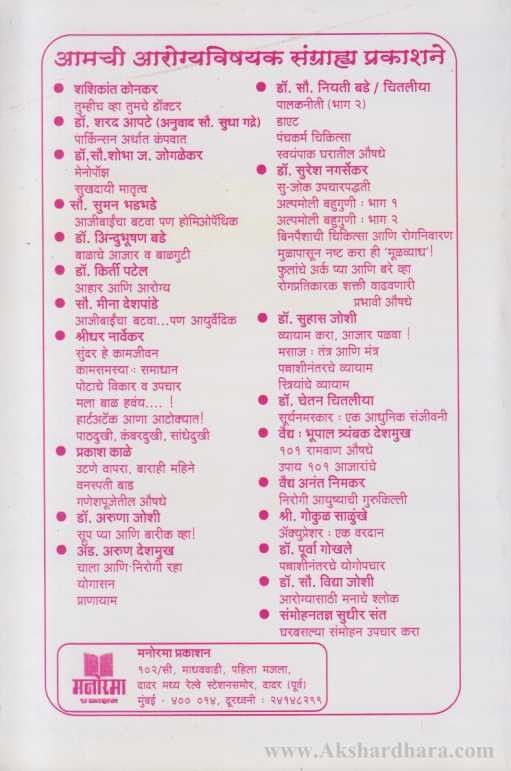 आमची आरोग्यविषयक संग्राह्य प्रकाशने
● शशिकांत कोनकर
तुम्हीच व्हा तुमचे डॉक्टर
● डॉ. शरद आपटे (अनुवाद सौ. सुधा गद्रे)
पार्किन्सन अर्थात कंपवात
● डॉ.सौ.शोभा ज. जोगळेकर
मेनोपॉझ
सुखदायी मातृत्व
● सौ. सुमन भडभडे
आजीबाईंचा बटवा पण होमिओपॅथिक
● डॉ. अिन्दुभूषण बडे
बाळाचे आजार व बाळगुटी
● डॉ. किर्ती पटेल
आहार आणि आरोग्य
● सौ. मीना देशपांडे
आजीबाईंचा बटवा...पण आयुर्वेदिक
● श्रीधर नार्वेकर
सुंदर हे कामजीवन
कामसमस्या : समाधान
पोटाचे विकार व उपचार
मला बाळ हवंय.... !
हार्टअटॅक आणा आटोक्यात!
पाठदुखी, कंबरदुखी, सांधेदुखी
● प्रकाश काळे
उटणे वापरा, बाराही महिने
वनस्पती बाड
गणेशपूजेतील औषधे
● डॉ. अरुणा जोशी
सूप प्या आणि बारीक व्हा!
● अ‍ॅड. अरुण देशमुख
चाला आणि निरोगी रहा
योगासन
प्राणायाम
● डॉ. सौ. नियती बडे / चितलीया
पालकनीती (भाग २)
डाएट
पंचकर्म चिकित्सा
स्वयंपाक घरातील औषधे
● डॉ. सुरेश नगर्सेकर
सु-जोक उपचारपद्धती
अल्पमोली बहुगुणी : भाग १
अल्पमोली बहुगुणी : भाग २
बिनपैशाची चिकित्सा आणि रोगनिवारण
मुळापासून नष्ट करा ही 'मूळव्याध'!
फुलांचे अर्क प्या आणि बरे व्हा
रोगप्रतिकारक शक्ती वाढवणारी
प्रभावी औषधे
● डॉ. सुहास जोशी
व्यायाम करा, आजार पळवा !
मसाज : तंत्र आणि मंत्र
पन्नाशीनंतरचे व्यायाम
स्त्रियांचे व्यायाम
● डॉ. चेतन चितलीया
सूर्यनमस्कार : एक आधुनिक संजीवनी
● वैद्य : भूपाल त्र्यंबक देशमुख
१०१ रामबाण औषधे
उपाय १०१ आजारांचे
● वैद्य अनंत निमकर
निरोगी आयुष्याची गुरुकिल्ली
● श्री. गोकुळ साळुंखे
अ‍ॅक्युप्रेशर : एक वरदान
● डॉ. पूर्वा गोखले
पन्नाशीनंतरचे योगोपचार
● डॉ. सौ. विद्या जोशी
आरोग्यासाठी मनाचे श्लोक
● संमोहनतज्ञ सुधीर संत
घरबसल्या संमोहन उपचार करा
मनोरमा
प्रकाशन
मनोरमा प्रकाशन
१०२/सी, माधववाडी, पहिला मजला,
दादर मध्य रेल्वे स्टेशनसमोर, दादर (पूर्व)
मुंबई - ४०० ०१४, दूरध्वनी : २४१४८२९९
www.Akshardhara.com